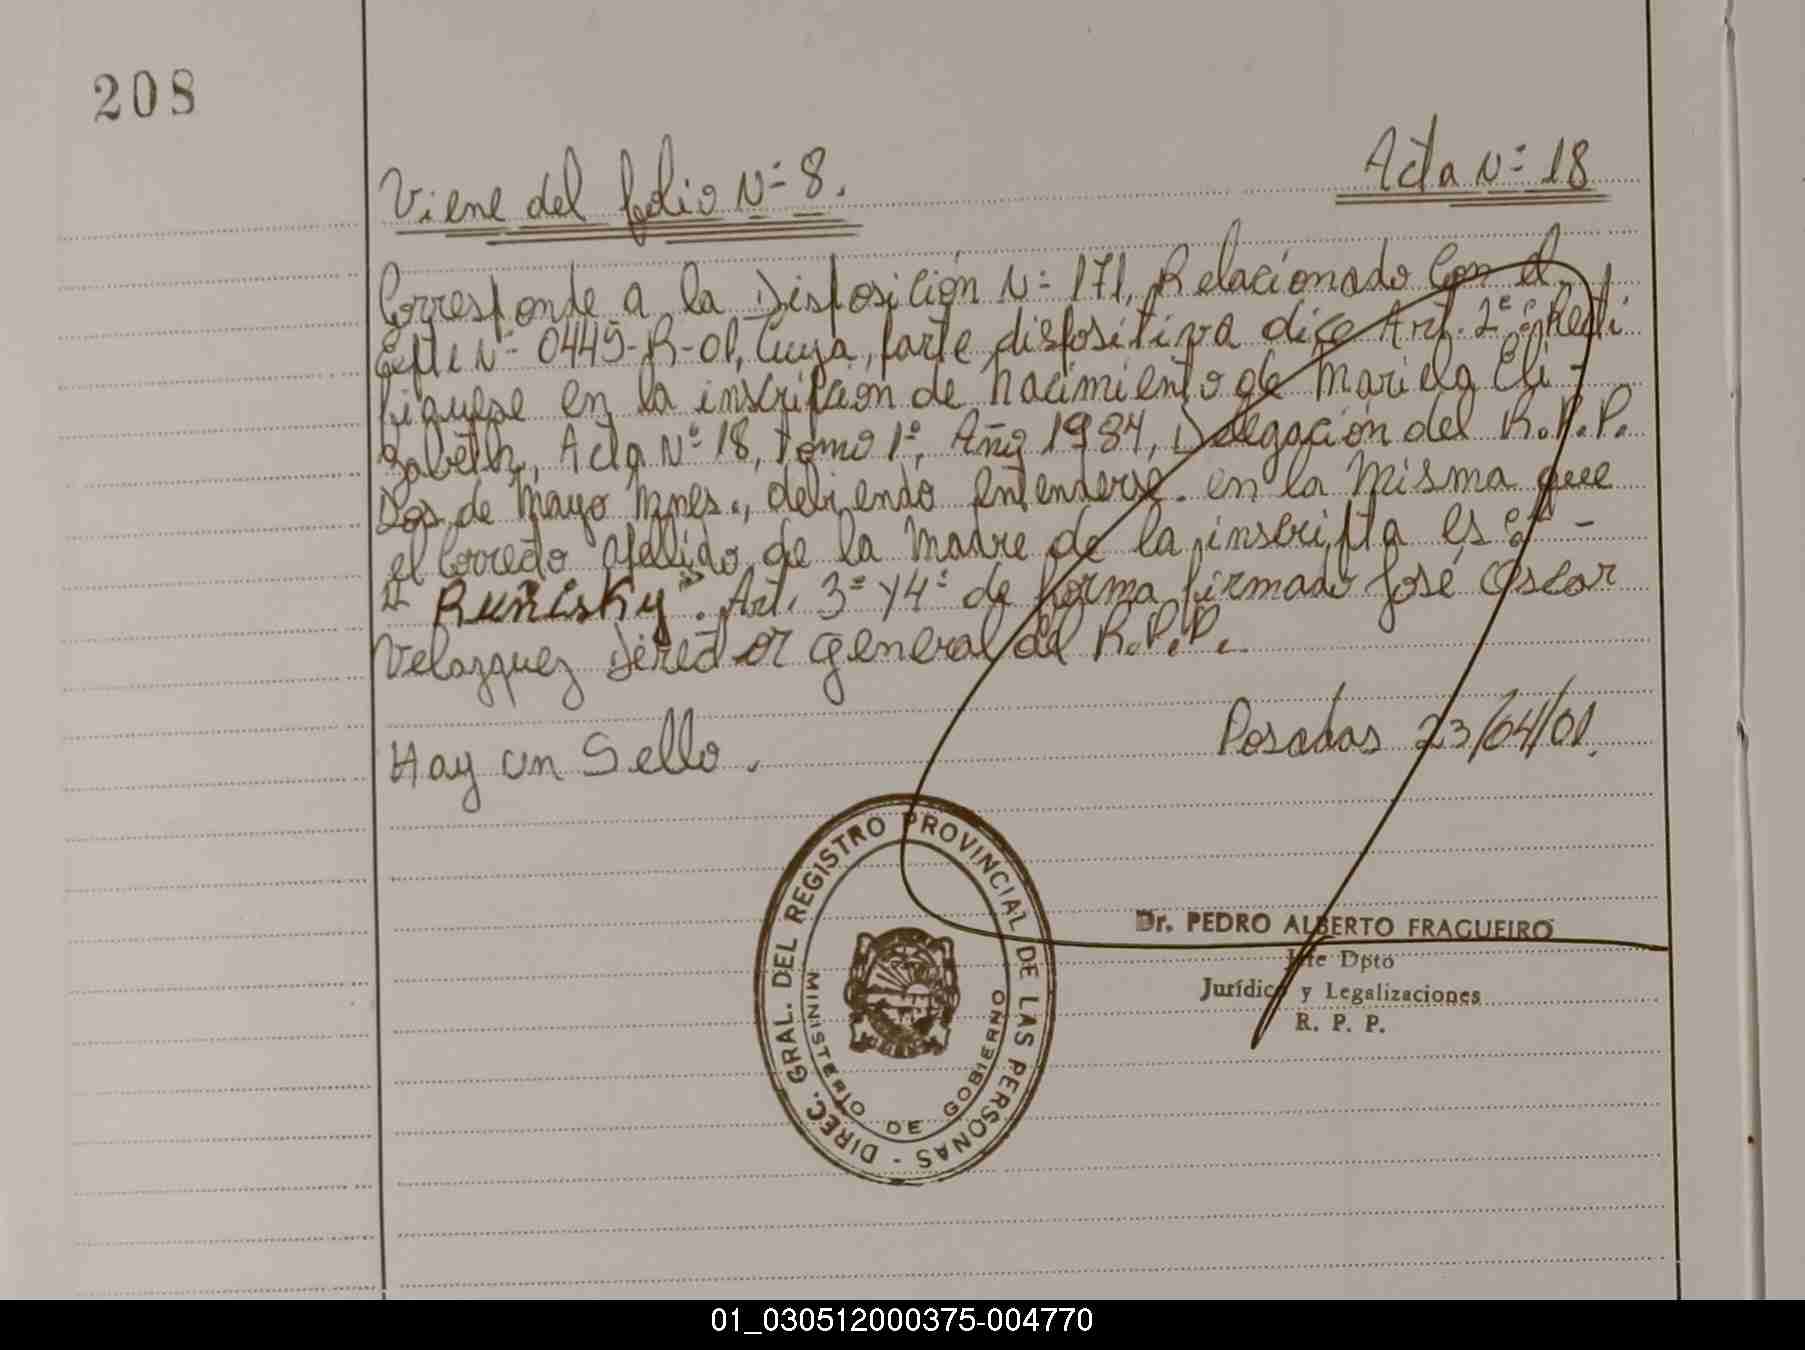 208
Viene del folio Nº 8.
Acta Nº 18
Corresponde a la Disposición Nº 171, Relacionado Con el
Expte Nº 0445-R-01, Cuya, parte dispositiva dice Art. 2º Recti
fiquese en la inscripción de nacimiento de Mariela Eli-
zabeth, Acta Nº 18, Tomo 1º, Año 1984, Delegación del R.P.P.
Dos de Mayo Mnes., debiendo entenderse en la Misma que
el Correcto apellido de la Madre de la inscripta es -
"Runisky". Art. 3º y 4º de forma firmado José Oscar
Velazquez Director general del R.P.P.
Hay un Sello.
Posadas 23/04/01.
DIREC. GRAL. DEL REGISTRO PROVINCIAL DE LAS PERSONAS -
MINISTERIO DE GOBIERNO
Dr. PEDRO ALBERTO FRAGUEIRO
Jefe Dpto
Jurídico y Legalizaciones
R. P. P.
01_030512000375-004770